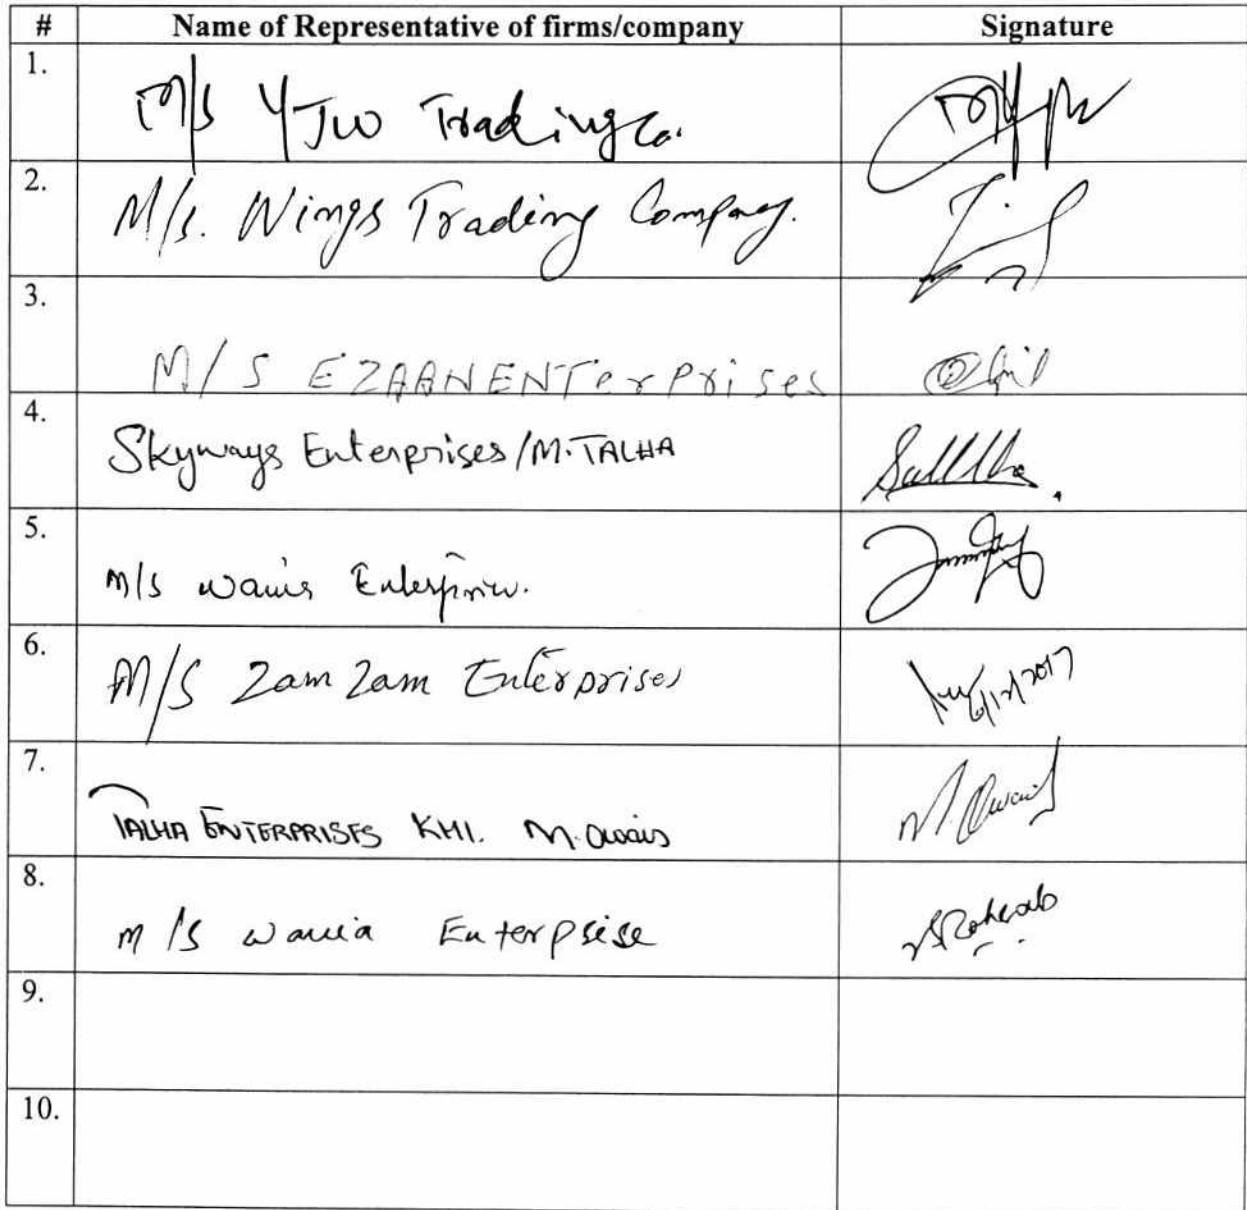 # Name of Representative of firms/company Signature
1. M/s YJW Trading Co.
2. M/s. Wings Trading Company.
3. M/S EZAAN ENTerPrises
4. Skyways Enterprises/M.TALHA
5. M/s Enterprise.
6. M/S Zam Zam Enterprises 6/12/2017
7. TALHA ENTERPRISES KHI. M. Owais M. Owais
8. M/S wania Enterprise
9.
10.